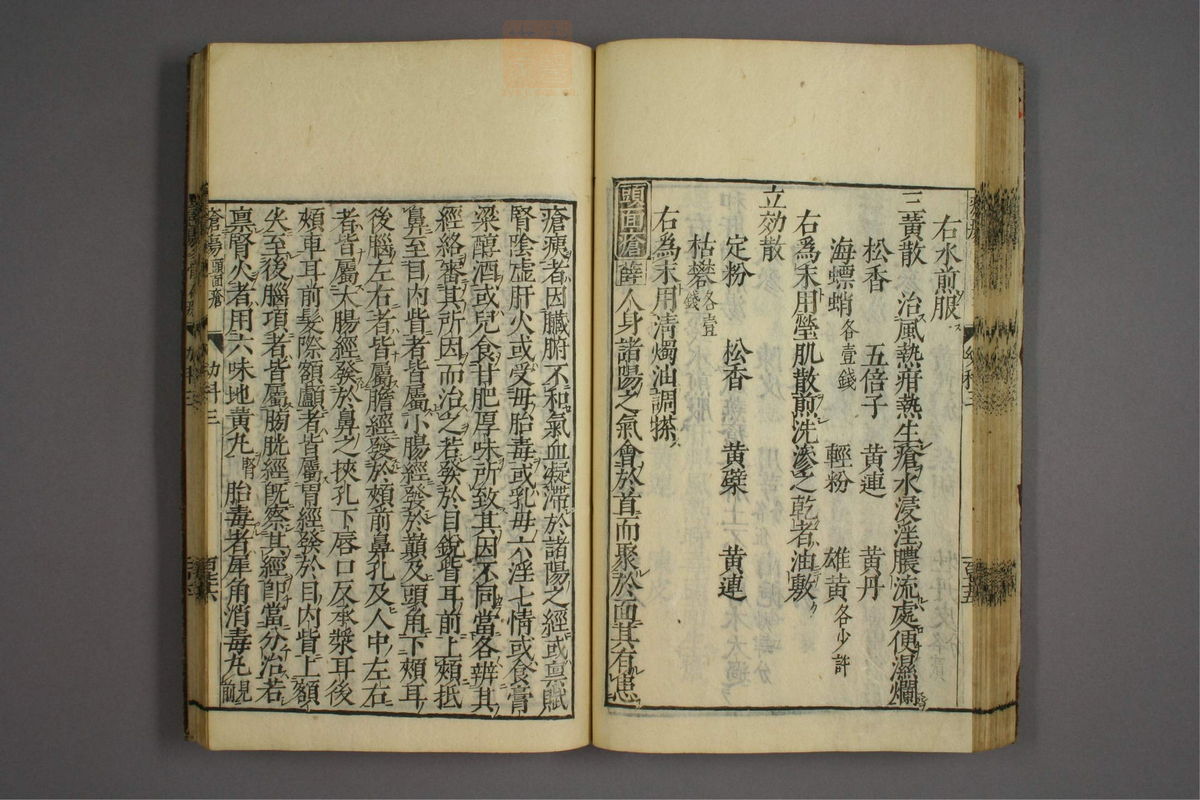 右水煎服
三黃散 治風熱疳熱生瘡水浸淫膿流處便濕爛
松香 五倍子 黃連 黃丹
海螵蛸各壹錢 輕粉 雄黃各少許
右為末用瑩肌散煎洗滲之乾者油敷
立効散
定粉 松香 黃檗 黃連
枯礬各壹錢
右為末用清燭油調搽
頭面瘡 薛 人身諸陽之氣會於首而聚於面其有患
瘡痍者因臟腑不和氣血凝滯於諸陽之經或稟賦
腎陰虛肝火或受母胎毒或乳母六淫七情或食膏
粱醇酒或兒食甘肥厚味所致其因不同當各辨其
經絡審其所因而治之若發於目銳眥耳前上頰抵
鼻至目內眥者皆屬小腸經發於巔及頭角下頰耳
後腦左右者皆屬膽經發於頰前鼻孔及人中左右
者皆屬大腸經發於鼻之挾孔下唇口反承漿耳後
頰車耳前髮際額顱者皆屬胃經發於目內眥上額
尖至後腦項者皆屬膀胱經既察其經卽當分治若
稟腎火者用六味地黃丸腎 胎毒者犀角消毒丸見前
瘡瘍頭面瘡 幼科三